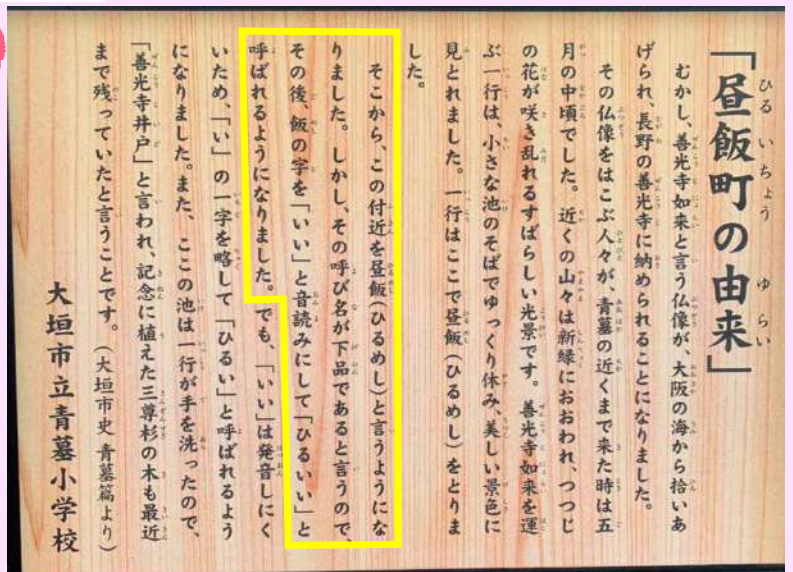 「昼飯町の由来」
ひるいちょう ゆらい
むかし、善光寺如来と言う仏像が、大阪の海から拾いあ
げられ、長野の善光寺に納められることになりました。
その仏像をはこぶ人々が、青墓の近くまで来た時は五
月の中頃でした。近くの山々は新緑におおわれ、つつじ
の花が咲き乱れるすばらしい光景です。善光寺如来を運
ぶ一行は、小さな池のそばでゆっくり休み、美しい景色に
見とれました。一行はここで昼飯(ひるめし)をとりま
した。
そこから、この付近を昼飯(ひるめし)と言うようにな
りました。しかし、その呼び名が下品であると言うので、
その後、飯の字を「いい」と音読みにして「ひるいい」と
呼ばれるようになりました。でも、「いい」は発音しにく
いため、「い」の一字を略して「ひるい」と呼ばれるよう
になりました。また、ここの池は一行が手を洗ったので、
「善光寺井戸」と言われ、記念に植えた三尊杉の木も最近
まで残っていたと言うことです。(大垣市史 青墓篇より)
大垣市立青墓小学校